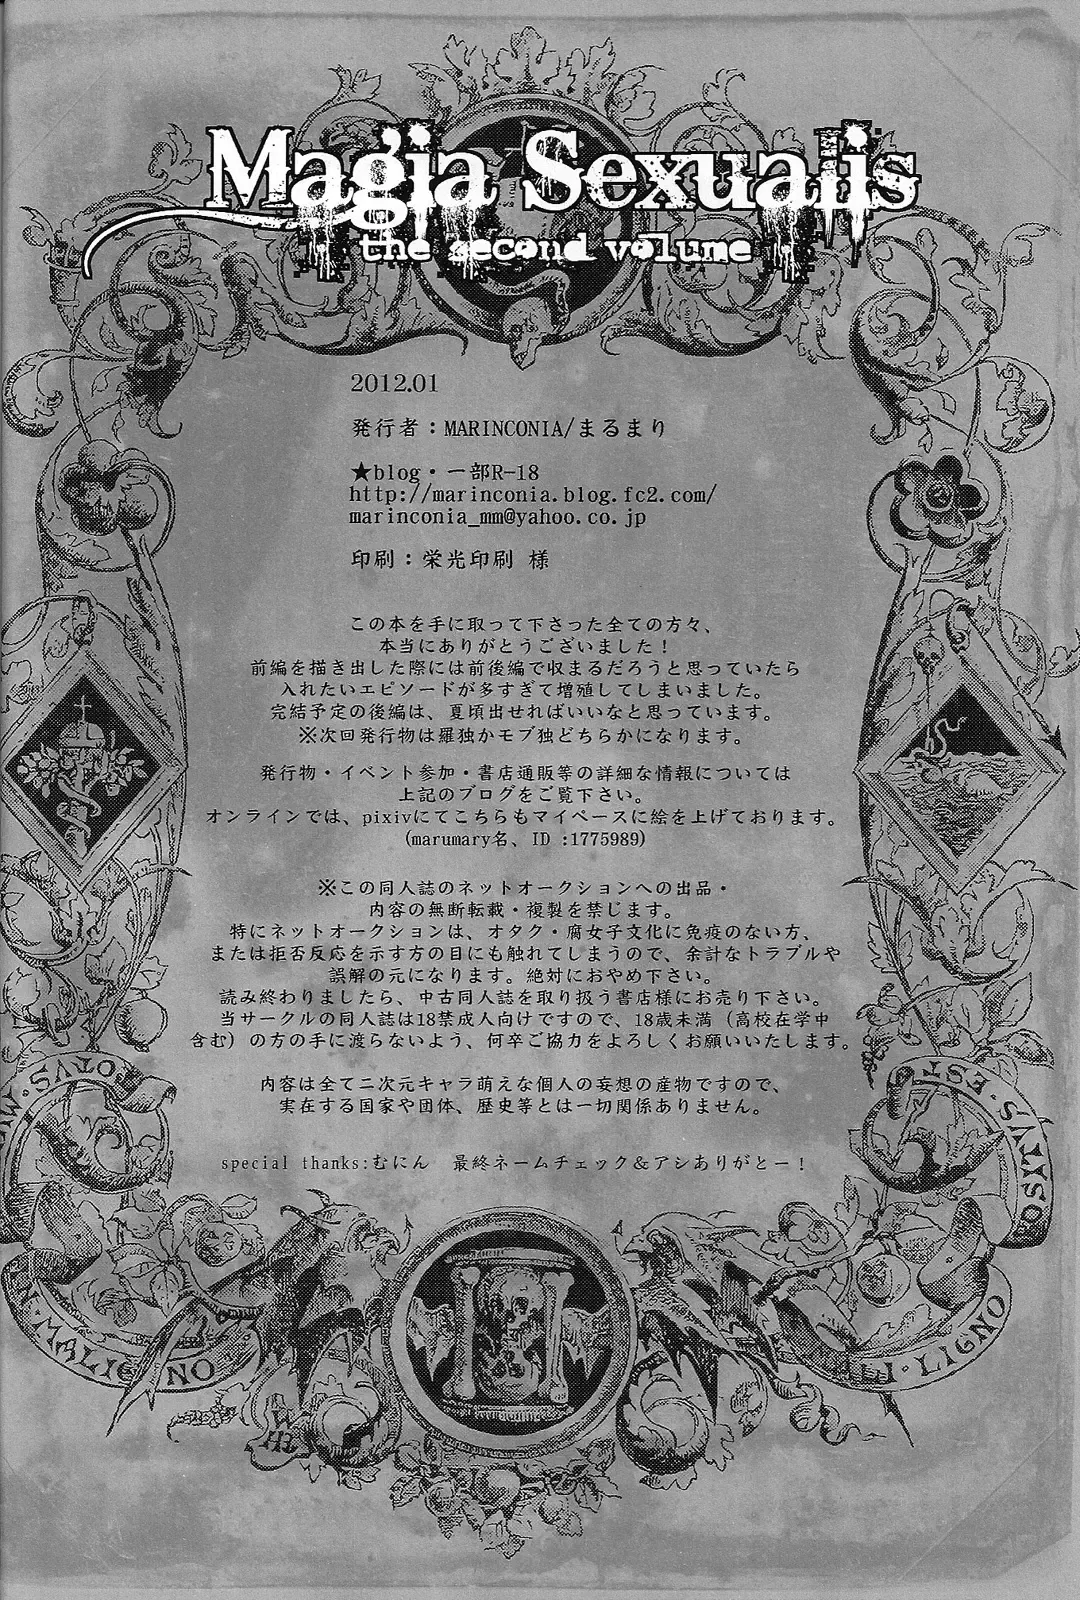 Magia Sexualis
the second volume
2012.01
発行者：MARINCONIA/まるまり
★blog・一部R-18
http://marinconia.blog.fc2.com/
marinconia_mm@yahoo.co.jp
印刷：栄光印刷 様
この本を手に取って下さった全ての方々、
本当にありがとうございました！
前編を描き出した際には前後編で収まるだろうと思っていたら
入れたいエピソードが多すぎて増殖してしまいました。
完結予定の後編は、夏頃出せればいいなと思っています。
※次回発行物は羅独かモブ独どちらかになります。
発行物・イベント参加・書店通販等の詳細な情報については
上記のブログをご覧下さい。
オンラインでは、pixivにてこちらもマイペースに絵を上げております。
(marumary名、ID :1775989)
※この同人誌のネットオークションへの出品・
内容の無断転載・複製を禁じます。
特にネットオークションは、オタク・腐女子文化に免疫のない方、
または拒否反応を示す方の目にも触れてしまうので、余計なトラブルや
誤解の元になります。絶対におやめ下さい。
読み終わりましたら、中古同人誌を取り扱う書店様にお売り下さい。
当サークルの同人誌は18禁成人向けですので、18歳未満（高校在学中
含む）の方の手に渡らないよう、何卒ご協力をよろしくお願いいたします。
内容は全て二次元キャラ萌えな個人の妄想の産物ですので、
実在する国家や団体、歴史等とは一切関係ありません。
special thanks:むにん　最終ネームチェック＆アシありがとー！
OSITVS·EST
LIGNO